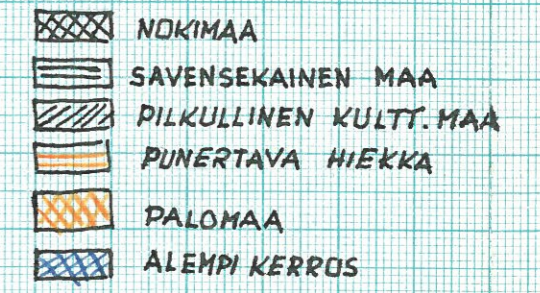 NOKIMAA
SAVENSEKAINEN MAA
PILKULLINEN KULTT. MAA
PUNERTAVA HIEKKA
PALOMAA
ALEMPI KERROS